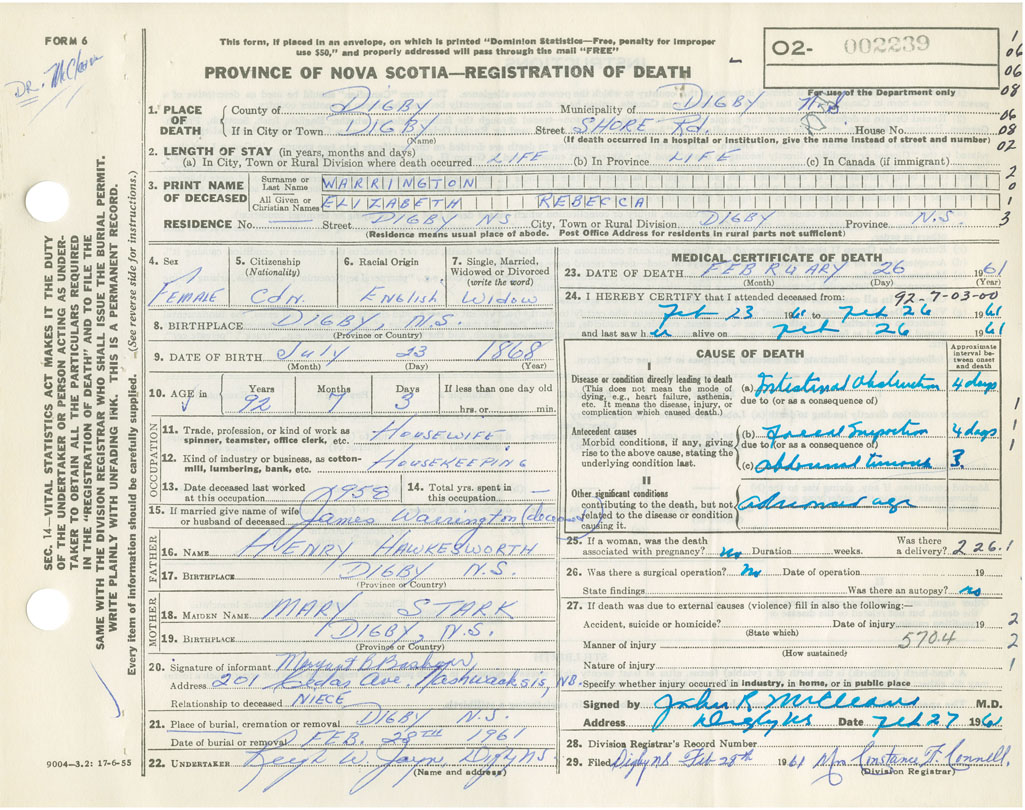 FORM 6
DR. McCleave
This form, if placed in an envelope, on which is printed "Dominion Statistics—Free, penalty for improper
use $50," and properly addressed will pass through the mail "FREE"
O2- 002239
PROVINCE OF NOVA SCOTIA—REGISTRATION OF DEATH
For use of the Department only
1. PLACE OF DEATH
County of DIGBY Municipality of DIGBY
If in City or Town DIGBY Street SHORE Rd. House No.
(Name) (If death occurred in a hospital or institution, give the name instead of street and number)
2. LENGTH OF STAY (in years, months and days)
(a) In City, Town or Rural Division where death occurred LIFE (b) In Province LIFE (c) In Canada (if immigrant)
3. PRINT NAME OF DECEASED
Surname or Last Name WARRINGTON
All Given or Christian Names ELIZABETH REBECCA
RESIDENCE No. — Street DIGBY NS City, Town or Rural Division DIGBY Province N.S.
(Residence means usual place of abode. Post Office Address for residents in rural parts not sufficient)
4. Sex
Female
5. Citizenship (Nationality)
Cdn.
6. Racial Origin
English
7. Single, Married, Widowed or Divorced (write the word)
Widow
8. BIRTHPLACE DIGBY, N.S.
(Province or Country)
9. DATE OF BIRTH July 23 1868
(Month) (Day) (Year)
10. AGE in Years 92 Months 7 Days 3 If less than one day old
hrs. or min.
OCCUPATION
11. Trade, profession, or kind of work as spinner, teamster, office clerk, etc. HOUSEWIFE
12. Kind of industry or business, as cotton-mill, lumbering, bank, etc. HOUSEKEEPING
13. Date deceased last worked at this occupation 1958
14. Total yrs. spent in this occupation —
15. If married give name of wife or husband of deceased James Warrington (deceased)
FATHER
16. NAME HENRY HAWKESWORTH
17. BIRTHPLACE DIGBY N.S.
(Province or Country)
MOTHER
18. MAIDEN NAME MARY STARK
19. BIRTHPLACE DIGBY, N.S.
(Province or Country)
20. Signature of informant Margaret B
Address 201 Cedar Ave. Nashwaaksis, NB
Relationship to deceased NIECE
21. Place of burial, cremation or removal DIGBY N.S.
Date of burial or removal FEB. 28TH 1961
22. UNDERTAKER W. Jayne Digby NS
(Name and address)
MEDICAL CERTIFICATE OF DEATH
23. DATE OF DEATH FEBRUARY 26 1961
(Month) (Day) (Year)
24. I HEREBY CERTIFY that I attended deceased from: 92-7-03-00
Feb 23 1961 to Feb 26 1961
and last saw her alive on Feb 26 1961
CAUSE OF DEATH
Approximate interval between onset and death
I
Disease or condition directly leading to death
(This does not mean the mode of dying, e.g., heart failure, asthenia, etc. It means the disease, injury, or complication which caused death.)
(a) Intestinal Obstruction 4 days
due to (or as a consequence of)
Antecedent causes
Morbid conditions, if any, giving rise to the above cause, stating the underlying condition last.
(b) Faecal Impaction 4 days
due to (or as a consequence of)
(c) Abdominal tumour 3.
II
Other significant conditions
contributing to the death, but not related to the disease or condition causing it.
Advanced age
25. If a woman, was the death associated with pregnancy? No Duration weeks. Was there a delivery? 226.1
26. Was there a surgical operation? No Date of operation 19
State findings Was there an autopsy? no
27. If death was due to external causes (violence) fill in also the following:—
Accident, suicide or homicide? Date of injury 19
(State which)
Manner of injury 570.4
(How sustained)
Nature of injury
Specify whether injury occurred in industry, in home, or in public place
Signed by John R McCleave M.D.
Address Digby NS Date Feb 27 1961
28. Division Registrar's Record Number
29. Filed Digby NS Feb 28th 1961 Mrs Constance F. Connell,
(Division Registrar)
SEC. 14—VITAL STATISTICS ACT MAKES IT THE DUTY
OF THE UNDERTAKER OR PERSON ACTING AS UNDER-
TAKER TO OBTAIN ALL THE PARTICULARS REQUIRED
IN THE "REGISTRATION OF DEATH" AND TO FILE THE
SAME WITH THE DIVISION REGISTRAR WHO SHALL ISSUE THE BURIAL PERMIT.
WRITE PLAINLY WITH UNFADING INK. THIS IS A PERMANENT RECORD.
Every item of information should be carefully supplied. (See reverse side for instructions.)
9004—3.2: 17-6-55
1
06
06
08
06
08
02
2
0
1
3
1
1
1
2
2
1